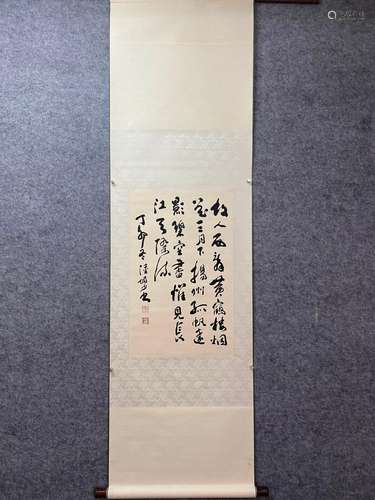 故人西辭黄鶴樓烟
花三月下揚州孤帆遠
影碧空盡惟見長
江天際流
丁卯冬